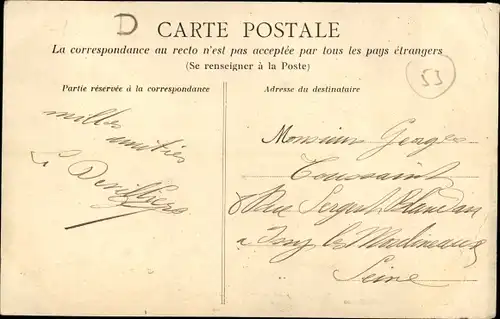 D
CARTE POSTALE
La correspondance au recto n'est pas acceptée par tous les pays étrangers
(Se renseigner à la Poste)
53
Partie réservée à la correspondance
Adresse du destinataire
milles
amitiés
Monsieur Georges
Toussaint
8 Rue Sergent Blandan
a Issy les Moulineaux
Seine